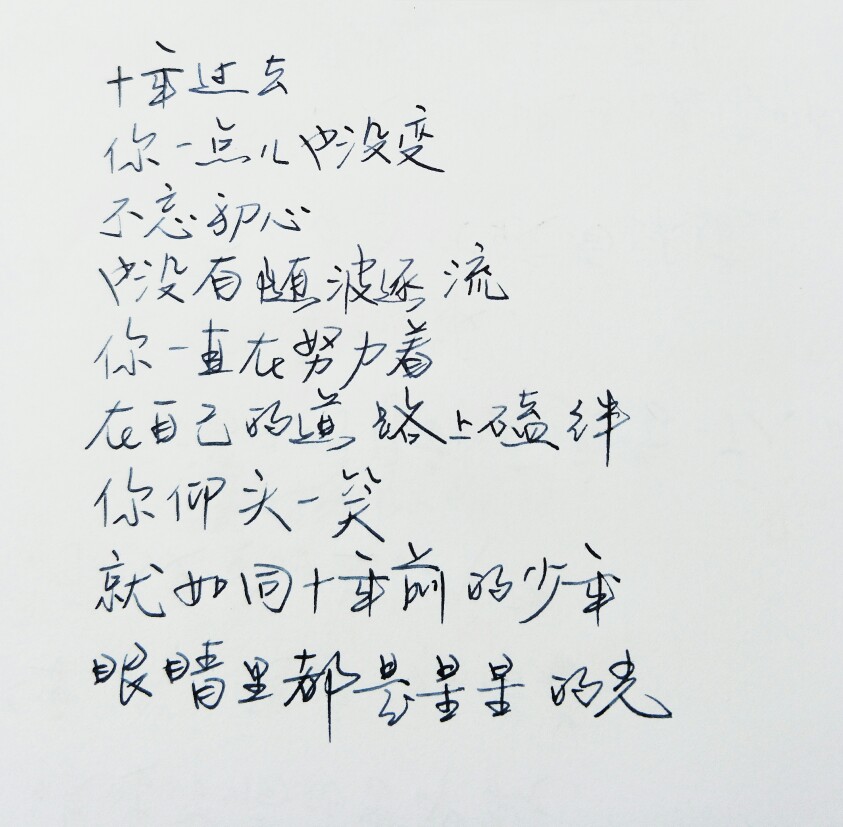 十年过去
你一点儿也没变
不忘初心
也没有随波逐流
你一直在努力着
在自己的道路上磕绊
你仰头一笑
就如同十年前的少年
眼睛里都是星星的光